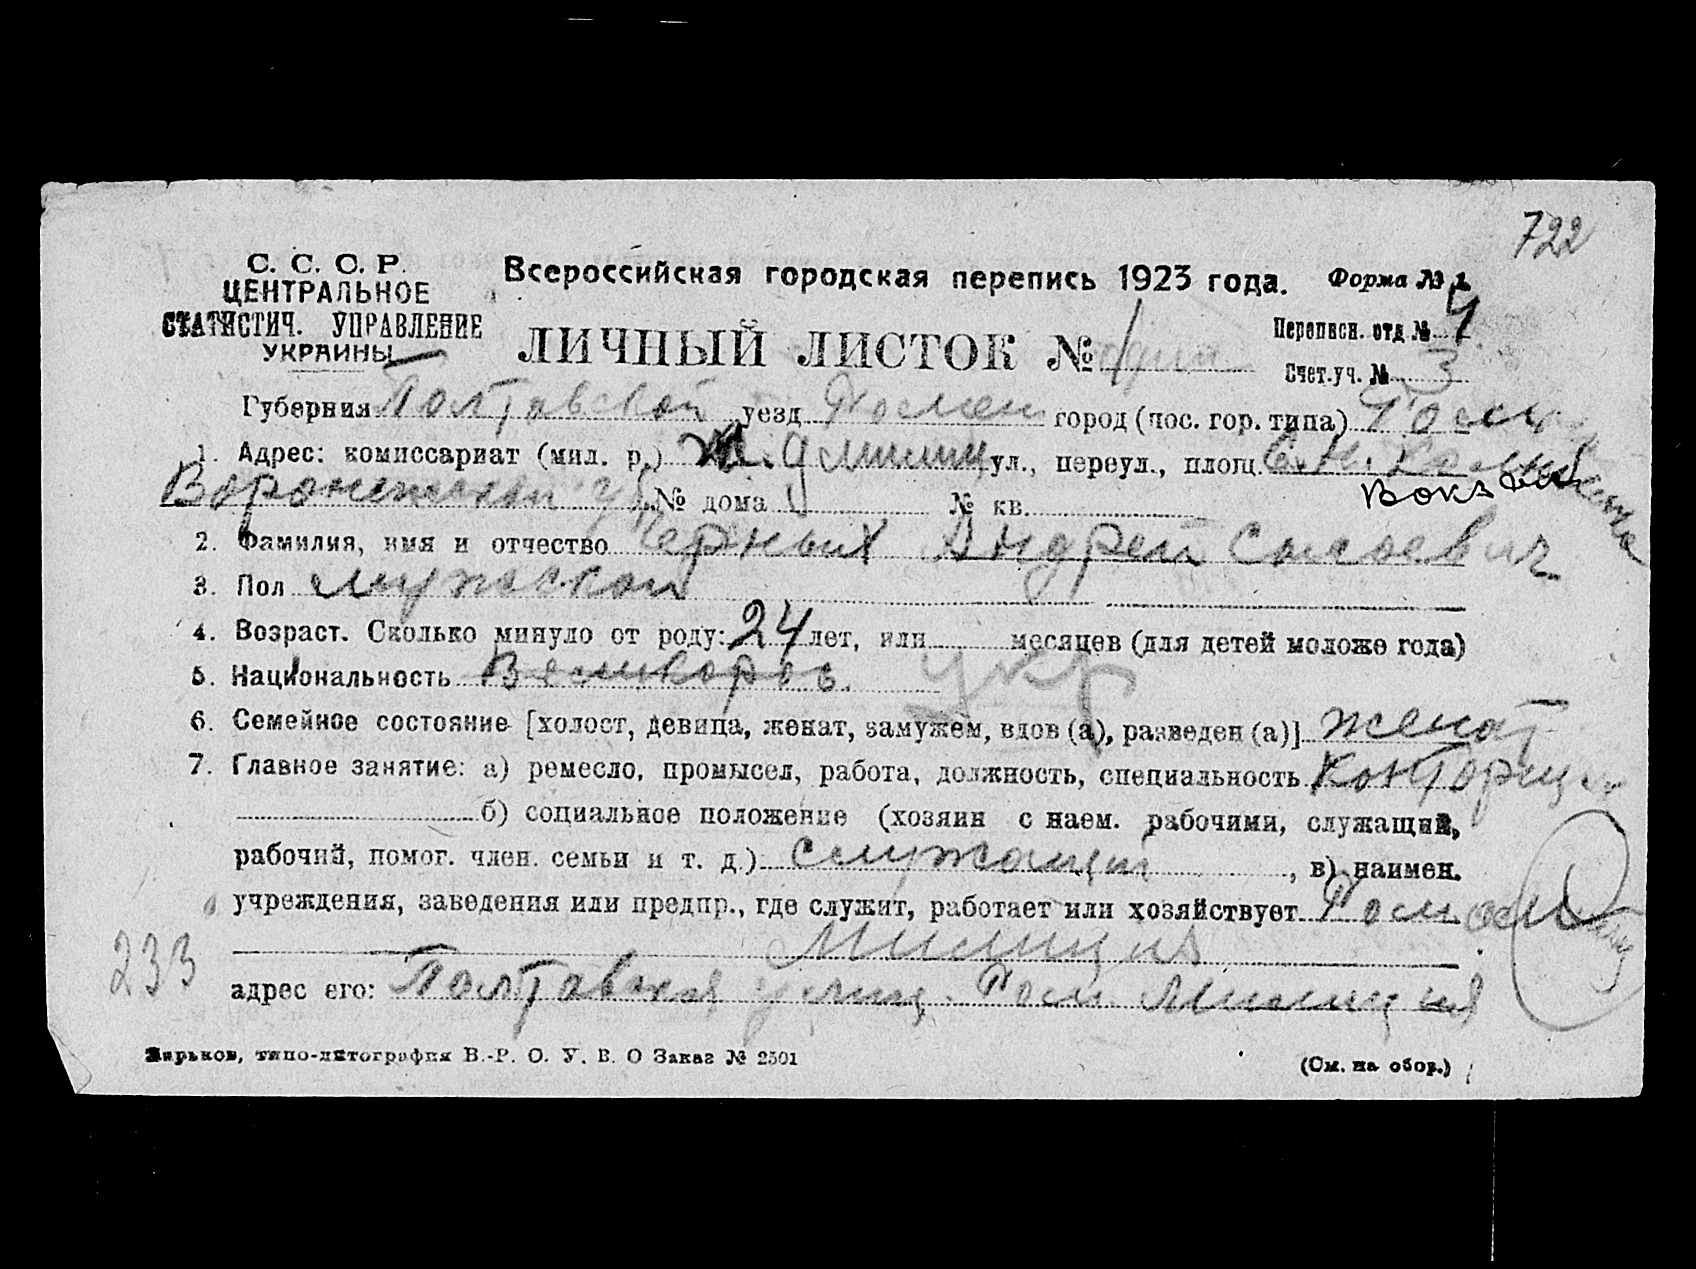 722
С. С. С. Р.
ЦЕНТРАЛЬНОЕ
СТАТИСТИЧ. УПРАВЛЕНИЕ
УКРАИНЫ
Всероссийская городская перепись 1923 года. Форма № 1.
ЛИЧНЫЙ ЛИСТОК № 1
Переписн. отд. № 4
Счет. уч. № 3
Губерния Полтавской уезд Ромен город (пос. гор. типа)
1. Адрес: комиссариат (мил. р.) ул., переул., площ.
№ дома № кв.
2. Фамилия, имя и отчество Черных Андрей Сысоевич
3. Пол мужской
4. Возраст. Сколько минуло от роду: 24 лет, или месяцев (для детей моложе года)
5. Национальность Великорос. укр
6. Семейное состояние [холост, девица, женат, замужем, вдов (а), разведен (а)] женат
7. Главное занятие: а) ремесло, промысел, работа, должность, специальность Конторщик
б) социальное положение (хозяин с наем. рабочими, служащий,
рабочий, помог. член. семьи и т. д.) служащий, в) наимен.
учреждения, заведения или предпр., где служит, работает или хозяйствует
Милиция
233
адрес его: Полтавская улиц. Ром. Милиция
Харьков, типо-литография В.-Р. О. У. В. О Заказ № 2501
(См. на обор.)